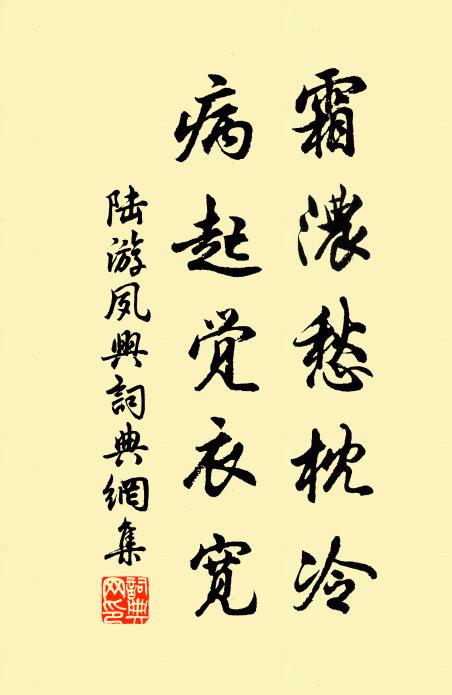 霜濃愁枕冷
病起觉衣寬
陆游夙興詞典網集
詞典網印